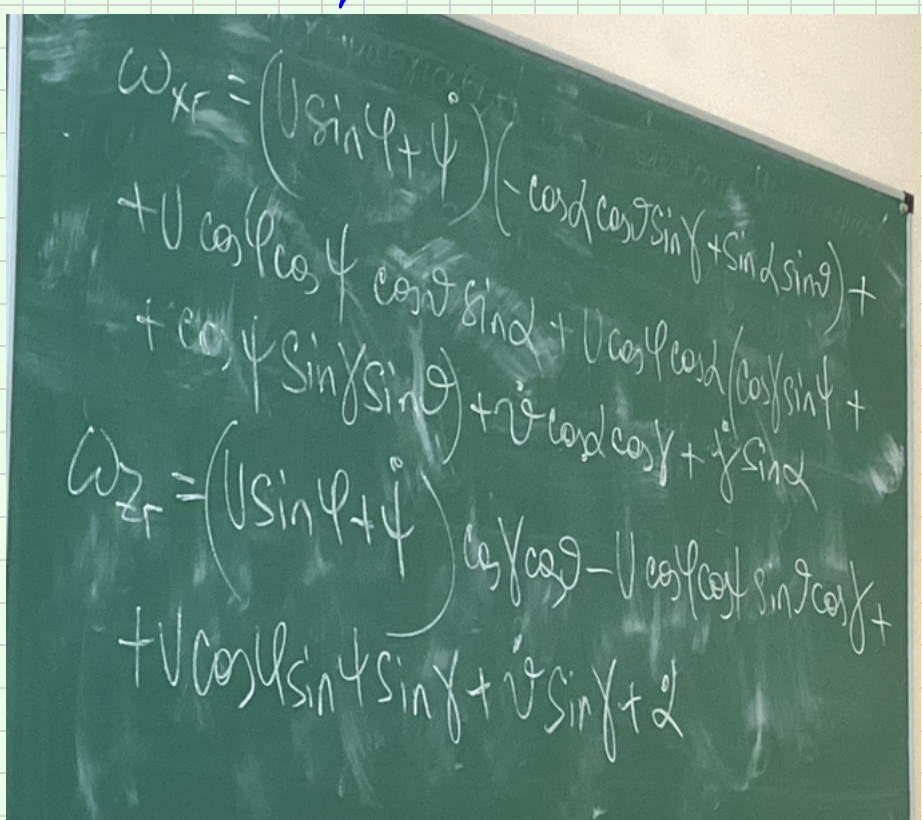 ω_xг = (U sin φ + ψ̇)(-cosα cosϑ sinγ + sinα sinϑ) +
+ U cosφ cosψ cosϑ sinα + U cosφ cosα (cosγ sinψ +
+ cosψ sinγ sinϑ) + ϑ̇ cosα cosγ + γ̇ sinα
ω_zг = (U sin φ + ψ̇) cosγ cosϑ - U cosφ cosψ sinϑ cosγ +
+ U cosφ sinψ sinγ + ϑ̇ sinγ + α̇